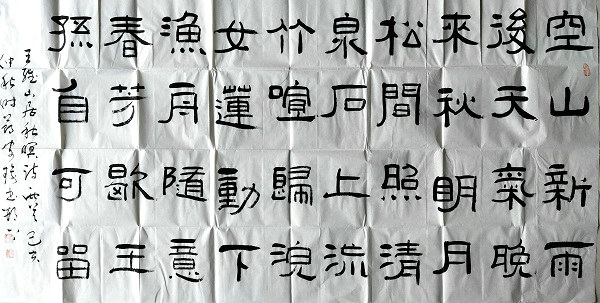 空山新雨
後天氣晚
來秋明月
松間照清
泉石上流
竹喧歸浣
女蓮動下
漁舟隨意
春芳歇王
孫自可留
王維山居秋暝詩己亥
仲秋时节